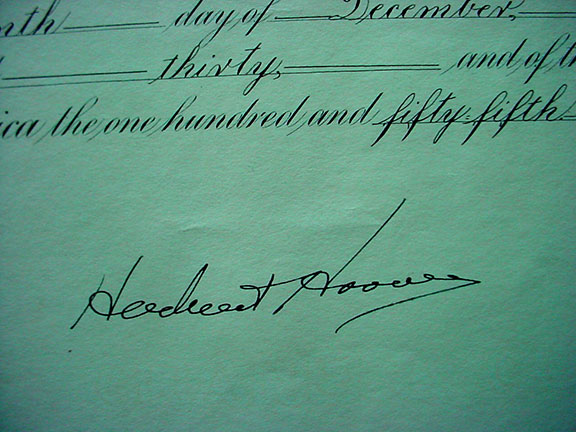 nth day of December,
thirty, and of th
ica the one hundred and fifty-fifth
Herbert Hoover